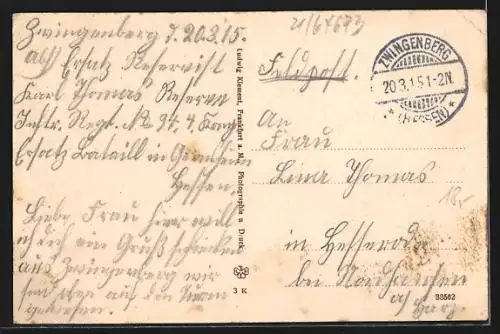 Zwingenberg d. 20.3.15.
Abs. Ersatz Reservist
Karl Thomas Reserve
Inftr. Regt. No 94, 4. Komp.
Ersatz Bataill in
Hessen.
Liebe Frau hier will
ich dir ein Gruß schicken
aus Zwingenberg wir
sind auf den Turm
gewesen.
Ludwig Klement, Frankfurt a. M. Photographie u. Druck
3 K
Feldpost.
ZWINGENBERG
20.3.15.1-2N.
* (HESSEN) *
An
Frau
Lina Thomas
in Hesserode
bei Nordhausen
a/ Harz.
18,-
38562